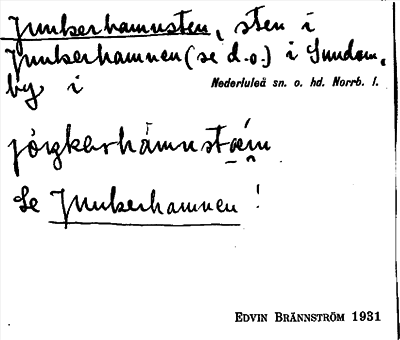 Junkerhamnsten, sten i
Junkerhamnen (se d.o.) i Sundom,
by i Nederluleå sn. o. hd. Norrb. l.
jòŋkerhàmnstæ̀in
Se Junkerhamnen!
EDVIN BRÄNNSTRÖM 1931